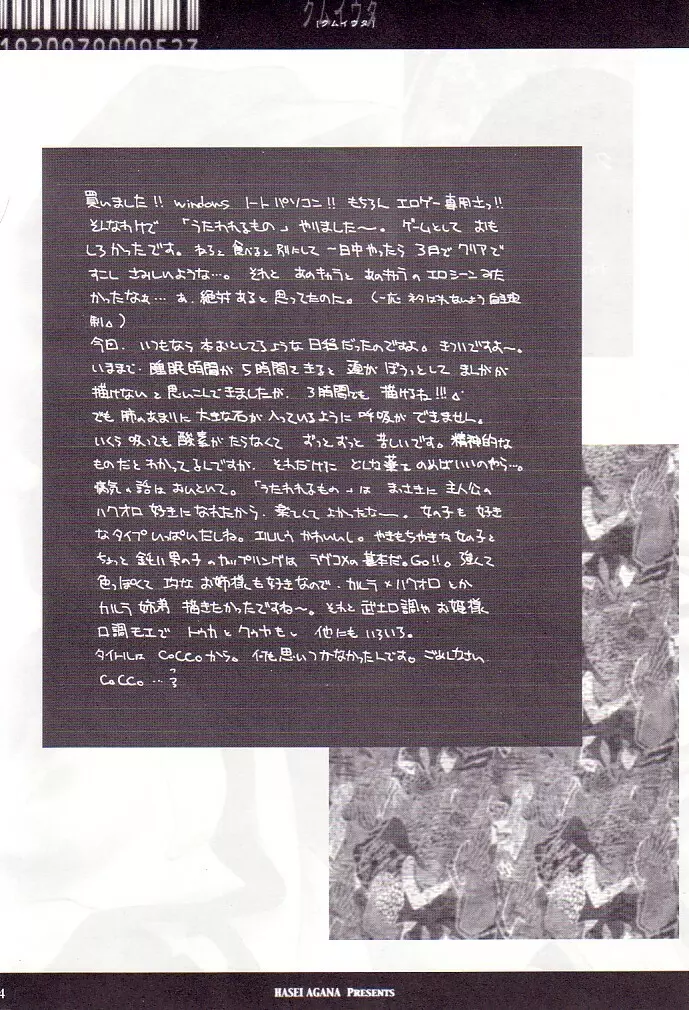 1920979009523
クムイウタ
[クムイウタ]
買いました!! windows ノートパソコン!! もちろん エロゲー専用士っ!!
そんなわけで 「うたわれるもの」 やりました〜。 ゲームとして おも
しろかったです。 ねると 食べると 別にして 一日中やったら 3日で クリアで
すこし さみしいような…。 それと あのキャラと あのキャラの エロシーン みた
かったなぁ… あ、絶対あると思ってたのに。 (一応 ネタばれないよう 自主規
制。)
今回、いつもなら 本おとしてるような 日程だったのですよ。 きついですよ〜。
いままで、睡眠時間が 5時間できると 頭が ぼうっとして まんがが
描けない と 思いこんできましたが、 3時間でも 描けるね!!!
でも 肺のあまりに 大きな石が 入っているように 呼吸が できません。
いくら 吸っても 酸素が たらなくて ずっとずっと 苦しいです。 精神的な
ものだと わかってるんですが、 それだけに どんな薬を のめばいいのやら…。
病気の話は おいといて。 「うたわれるもの」は まっさきに 主人公の
ハクオロ 好きになれたから、 楽しくて よかったな〜。 女の子も 好き
なタイプ いっぱいだしね。 エルルゥ かわいいし。 やきもちやきな 女の子と
ちょっと 鈍い 男の子 のカップリングは ラヴコメの 基本だ。Go!!。 強くて
色っぽくて 巧な お姉様も 好きなので、 カルラ×ハクオロ とか
カルラ 姉弟 描きたかったですね〜。 それと 武士口調や お姫様
口調モエで トウカと クゥヤもし 他にも いろいろ。
タイトルは coccoから。 何も思いつかなかったんです。 ごめんなさい
cocco…?
4
HASEI AGANA PRESENTS